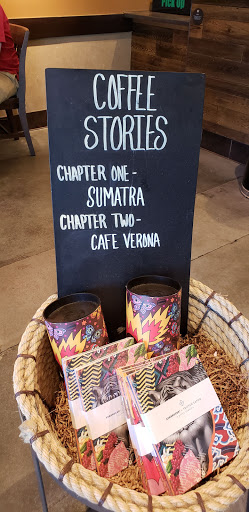 Pick Up
COFFEE
STORIES
CHAPTER ONE-
SUMATRA
CHAPTER TWO-
CAFE VERONA